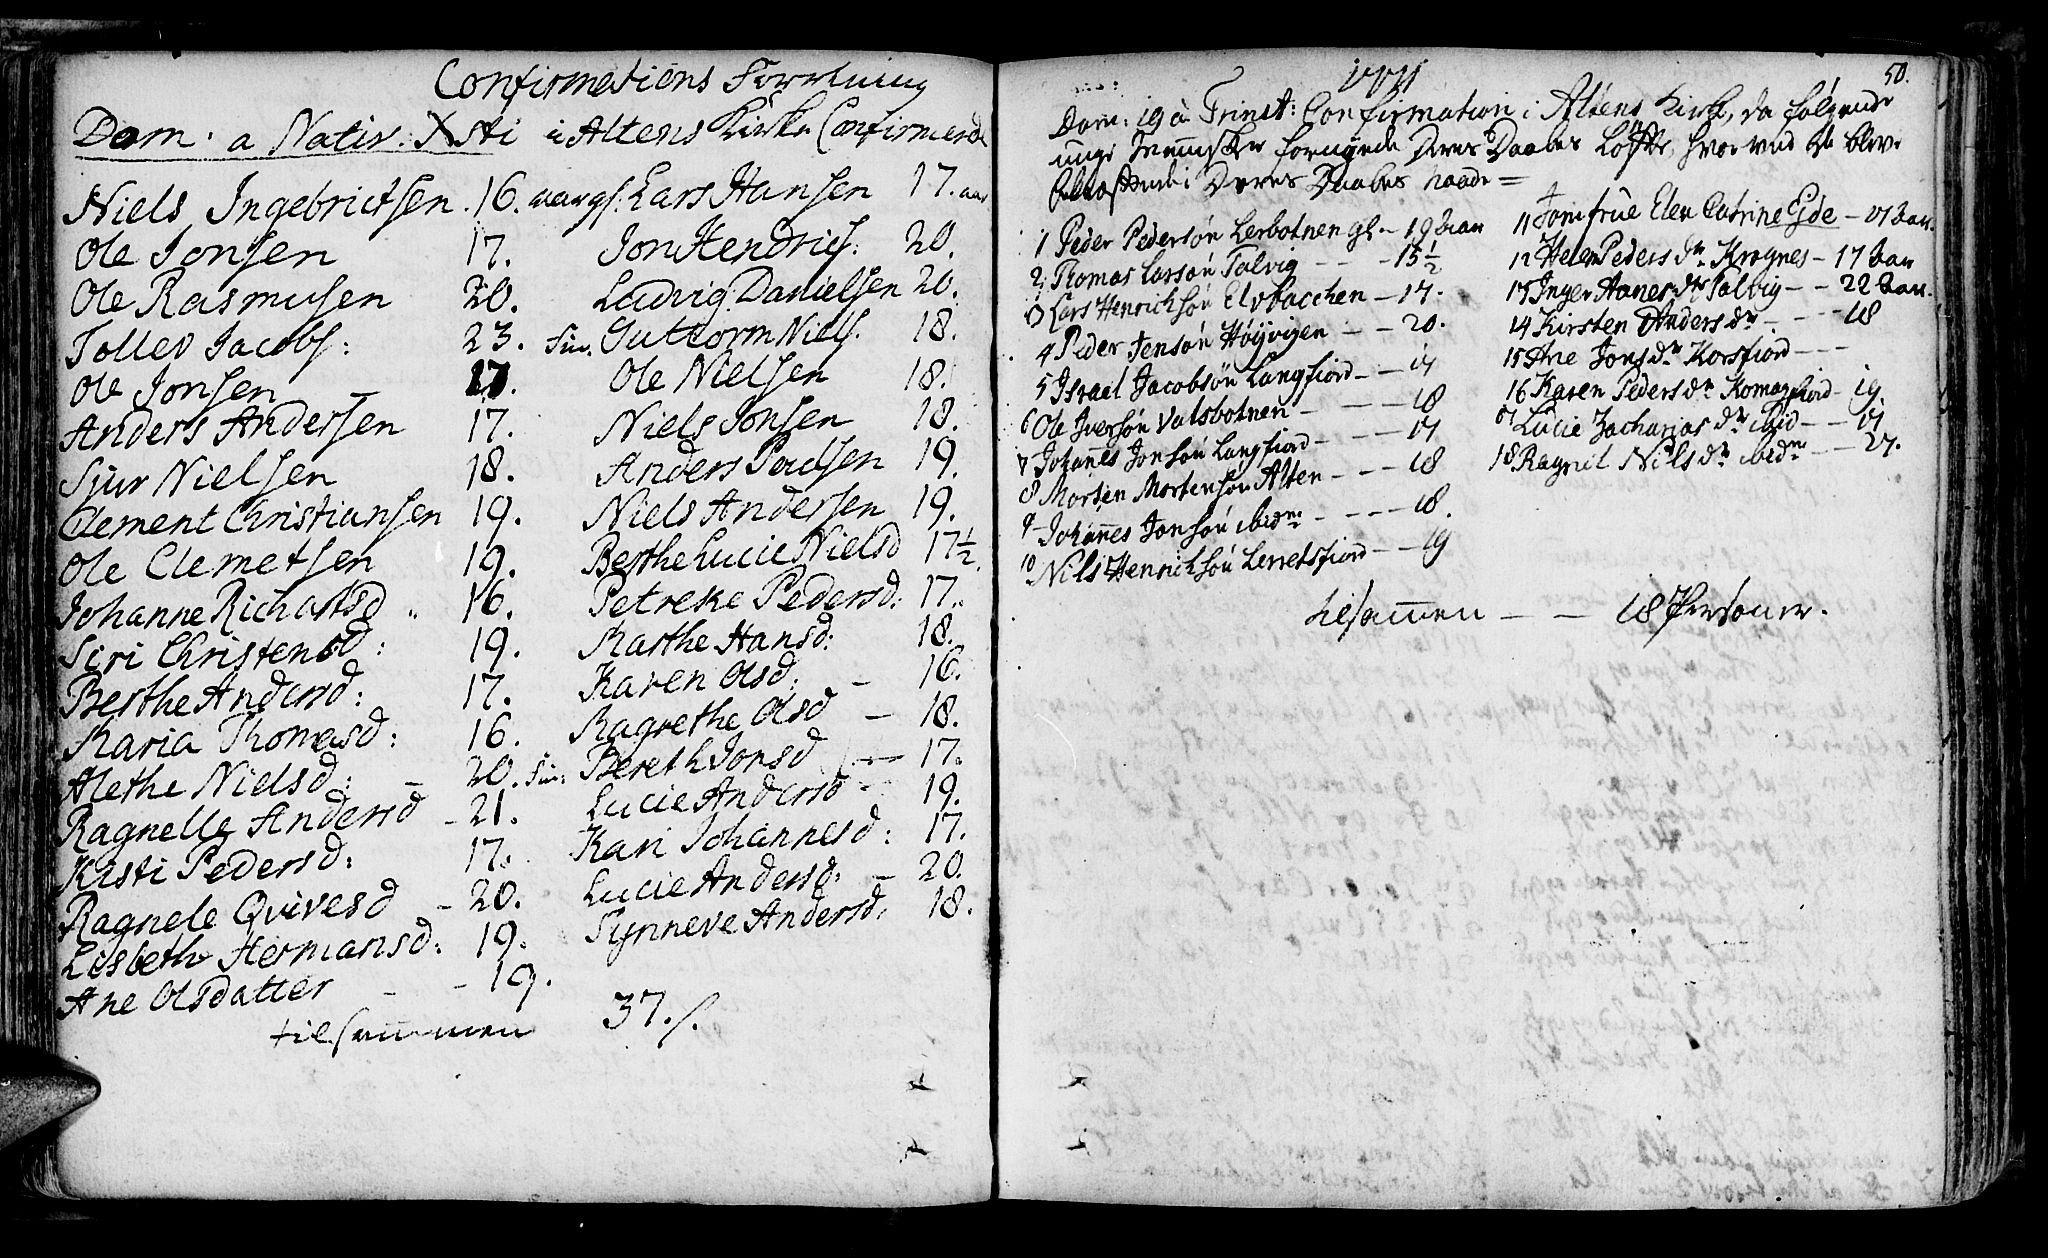 Confirmations Forretning
Dom: a Nativ: Xsti i Altens Kirke Confirmerede
Niels Ingebrictsen. 16. aar gl:
Ole Jonsen 17.
Ole Rasmusen 20.
Tolles Jacobs: 23.
Ole Jonsen – 17.
Anders Andersen 17.
Sjur Nielsen 18.
Clement Christiansen 19.
Ole Clemetsen 19.
Johanne Richartsd 16.
Siri Christensd: 19.
Berthe Andersd: 17.
Maria Thomasd: 16.
Alethe Nielsd: – 20.
Ragnelle Andersd – 21.
Kisti Pedersd: 17.
Ragnele Qvivesd – 20.
Lisbeth Hermansd: 19.
Ane Olsdatter – – 19.
Lars Hansen 17. aar
Jon Hendrics: 20.
Ludvig Danielsen 20.
Guttorm Niels. 18.
Ole Nielsen 18.
Niels Jonsen 18.
Anders Poulsen 19.
Niels Andersen 19.
Berthe Lucie Nielsd 17½.
Petreke Pedersd: 17.
Marthe Hansd: 18.
Karen Olsd: – 16.
Magrethe Olsd – 18.
Bereth Jonsd 17.
Lucie Andersd 19.
Kari Johannesd: 17.
Lucie Andersd. – 20.
Synneve Andersd. 18.
tilsammen 37.
50.
1771
Dom: 19 à Trinit: Confirmation i Altens Kirke, da følgende
unge Mennisker fornyede Deres Daabes Løfte, hvorved de blev
Deres Daabes naade =
1 Peder Pedersøn Lerbotnen gl. – 19 aar
2 Thomas Larsøn Talvig – – – 15½
3 Lars Henrichsøn Elvbacchen – 17.
4 Peder Jensøn Høyvigen – – 20.
5 Israel Jacobsøn Langfiord – – 17
6 Ole Iversøn Valsbotnen – – – – 18
7 Johannes Jonsøn Langfiord – – – – 17
8 Morten Mortensøn Alten – – – – 18
9 Johannes Jonsøn ibidm – – – – 18.
10 Nils Henrichsøn Lerretsfiord – – 19
11 Jomfrue Elen Catrine Ejde – 17 aar.
12 Helen Peders dr Krognes – 17 aar
13 Inger Hanes dr Talvig – – 22 aar.
14 Kirsten Anders dr – – – 18
15 Ane Jons dr Korsfiord – – –
16 Karen Peders dr Komagfiord – 19.
17 Lucie Zacharias dr ibid – – 17
18. Ragnil Nils dr ibidm – – 27.
tilsammen – – 18 Personer.